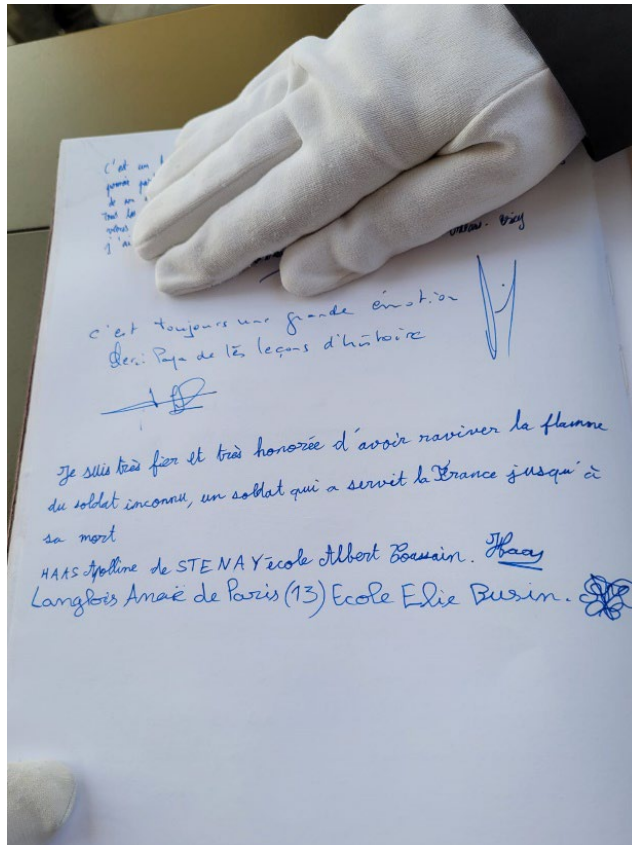 c'est un
de un
j'ai
c'est toujours une grande émotion
Merci Papa de tes leçons d'histoire
Je suis très fier et très honorée d'avoir raviver la flamme
du soldat inconnu, un soldat qui a servit la France jusqu'à
sa mort
HAAS Apolline de STENAY école Albert Toussain. Haas
Langlois Anaë de Paris (13) Ecole Elie Busin.